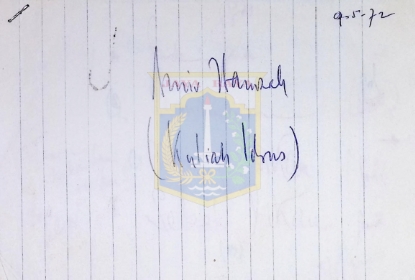 9-5-72
Amir Hamzah
(Kuliah Idrus)